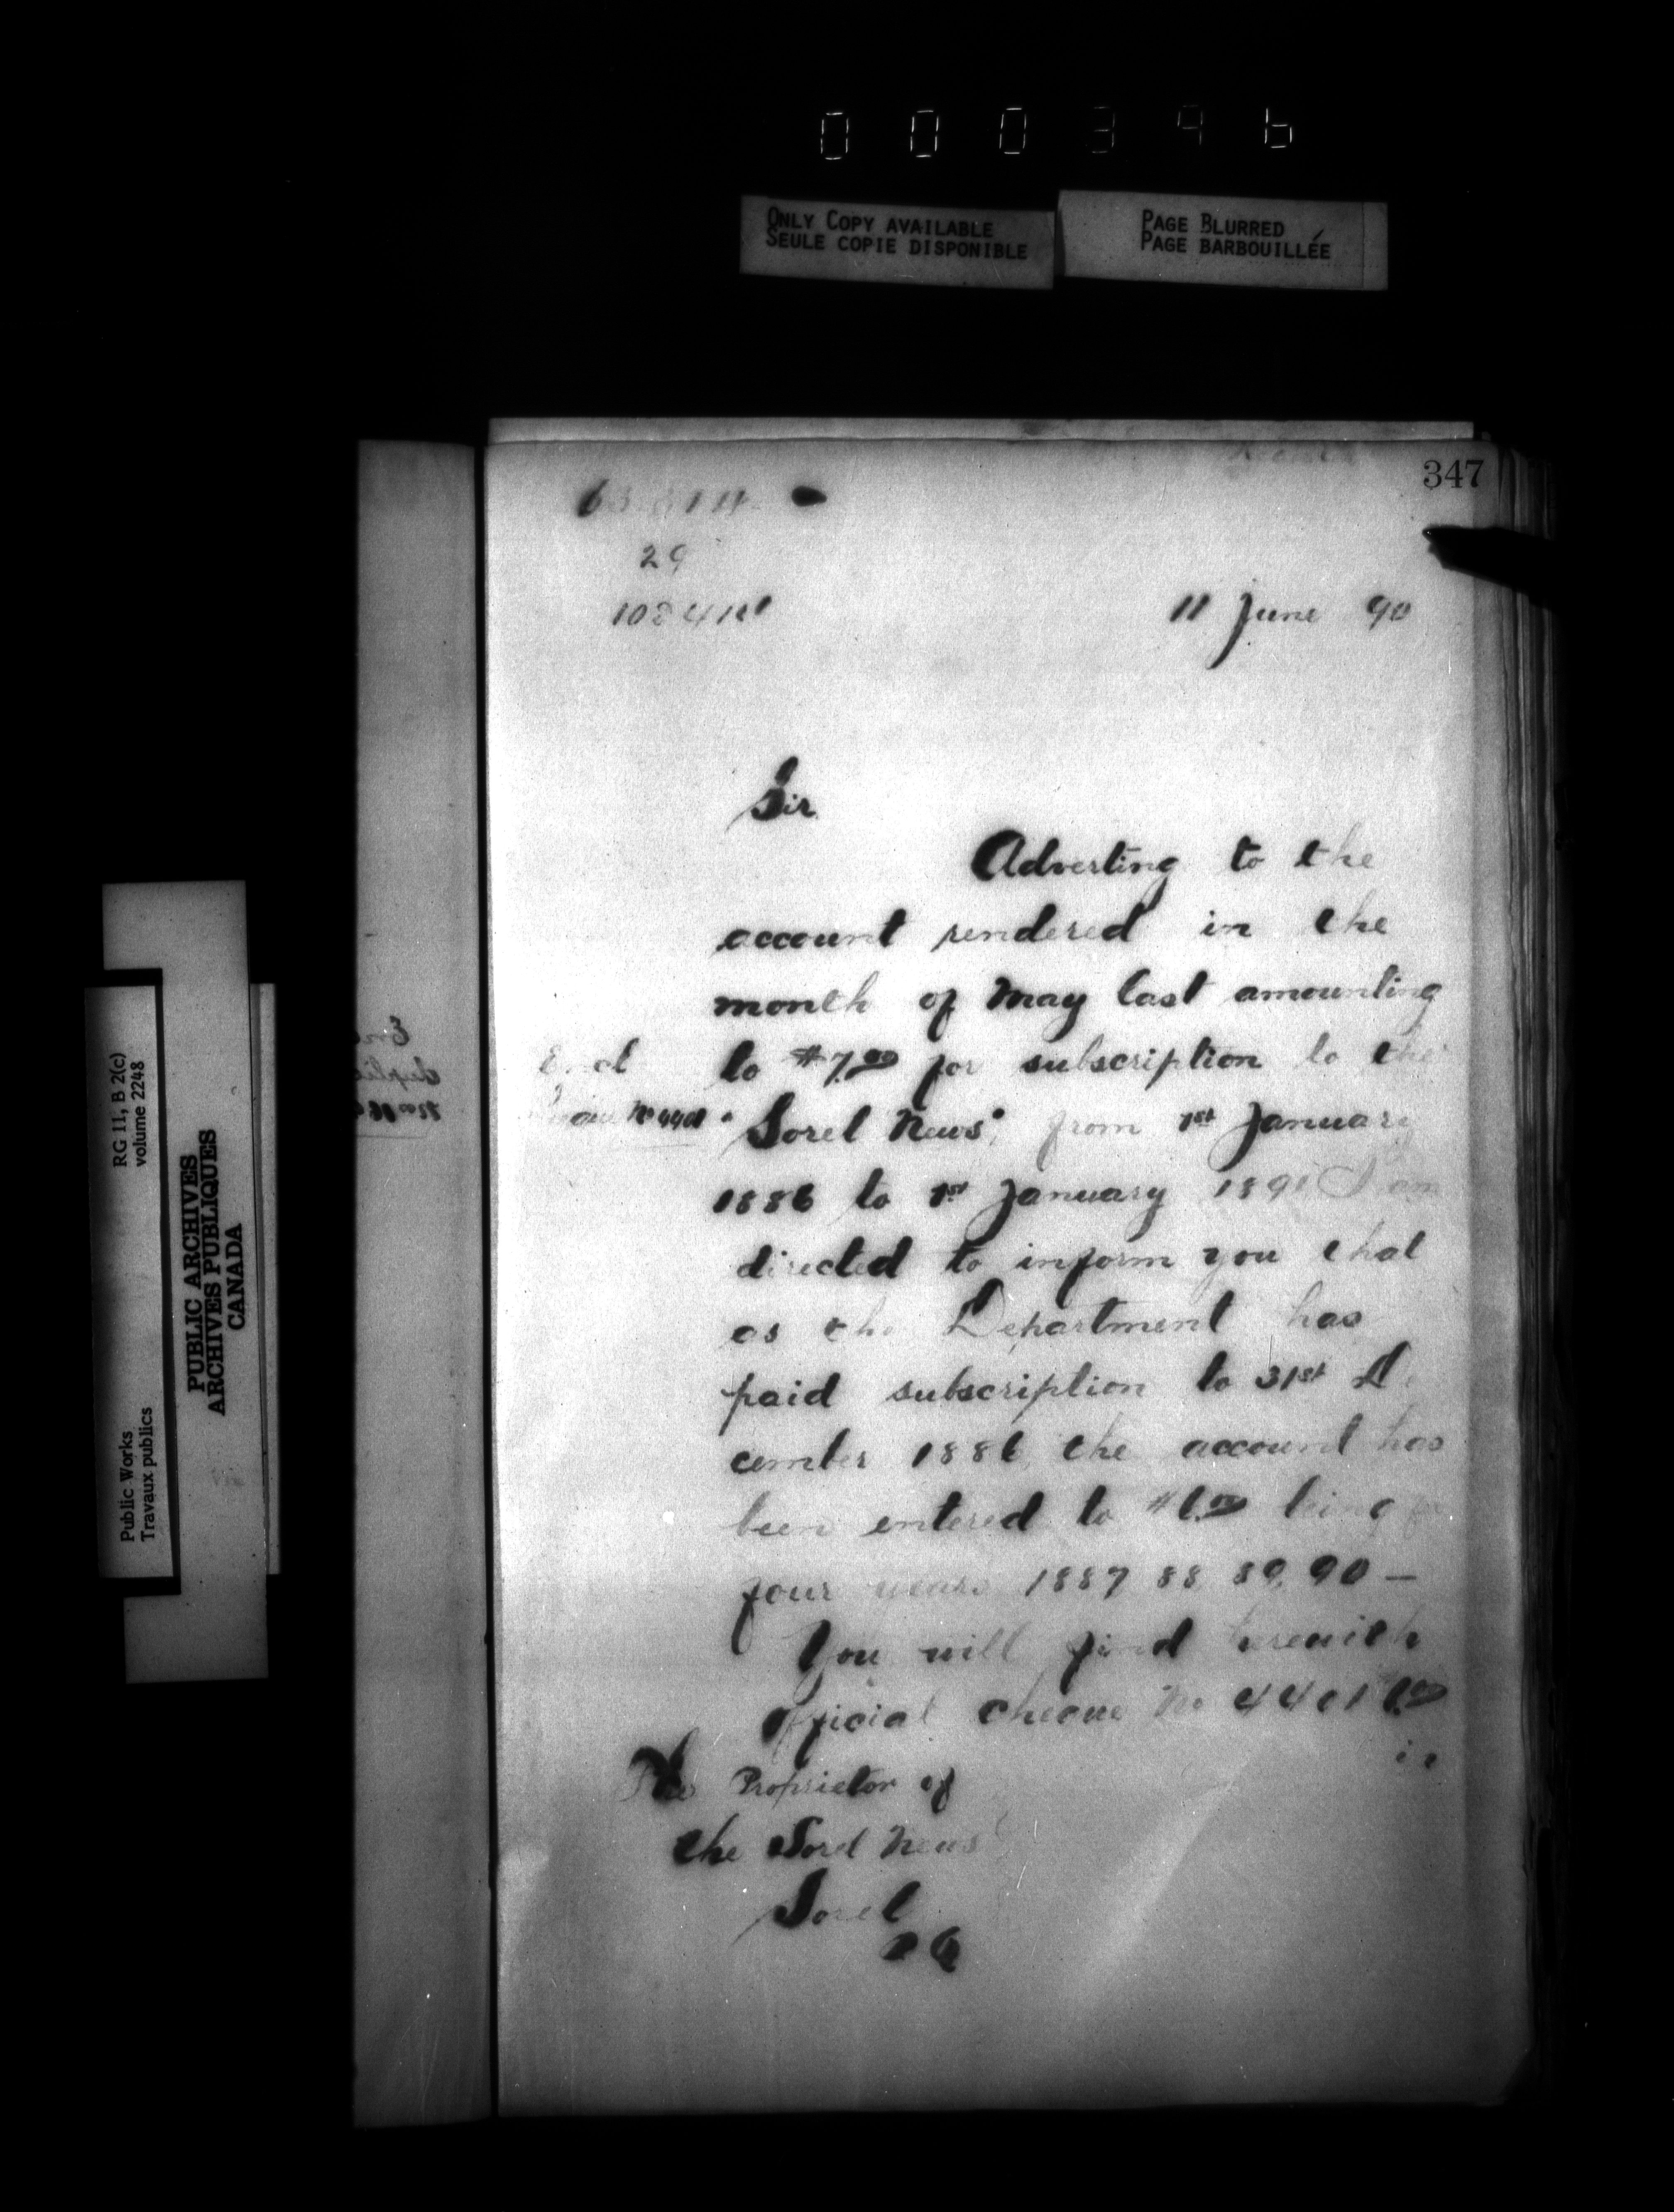 000346
ONLY COPY AVAILABLE
SEULE COPIE DISPONIBLE
PAGE BLURRED
PAGE BARBOUILLÉE
347
29
11 June 90
Sir
Adverting to the
account rendered in the
month of May last amounting
Encl
to $7.00 for subscription to the
"Sorel News", from 1st January
1886 to 1st January 1891 I am
directed to inform you that
as the Department has
paid subscription to 31st De
cember 1886 the account has
been entered to $6.00 being for
four years 1887 88 89. 90 —
You will find herewith
official cheque No 4401
in
The Proprietor of
the Sorel News
Sorel
PQ
RG 11, B 2(c)
volume 2248
Public Works
Travaux publics
PUBLIC ARCHIVES
ARCHIVES PUBLIQUES
CANADA